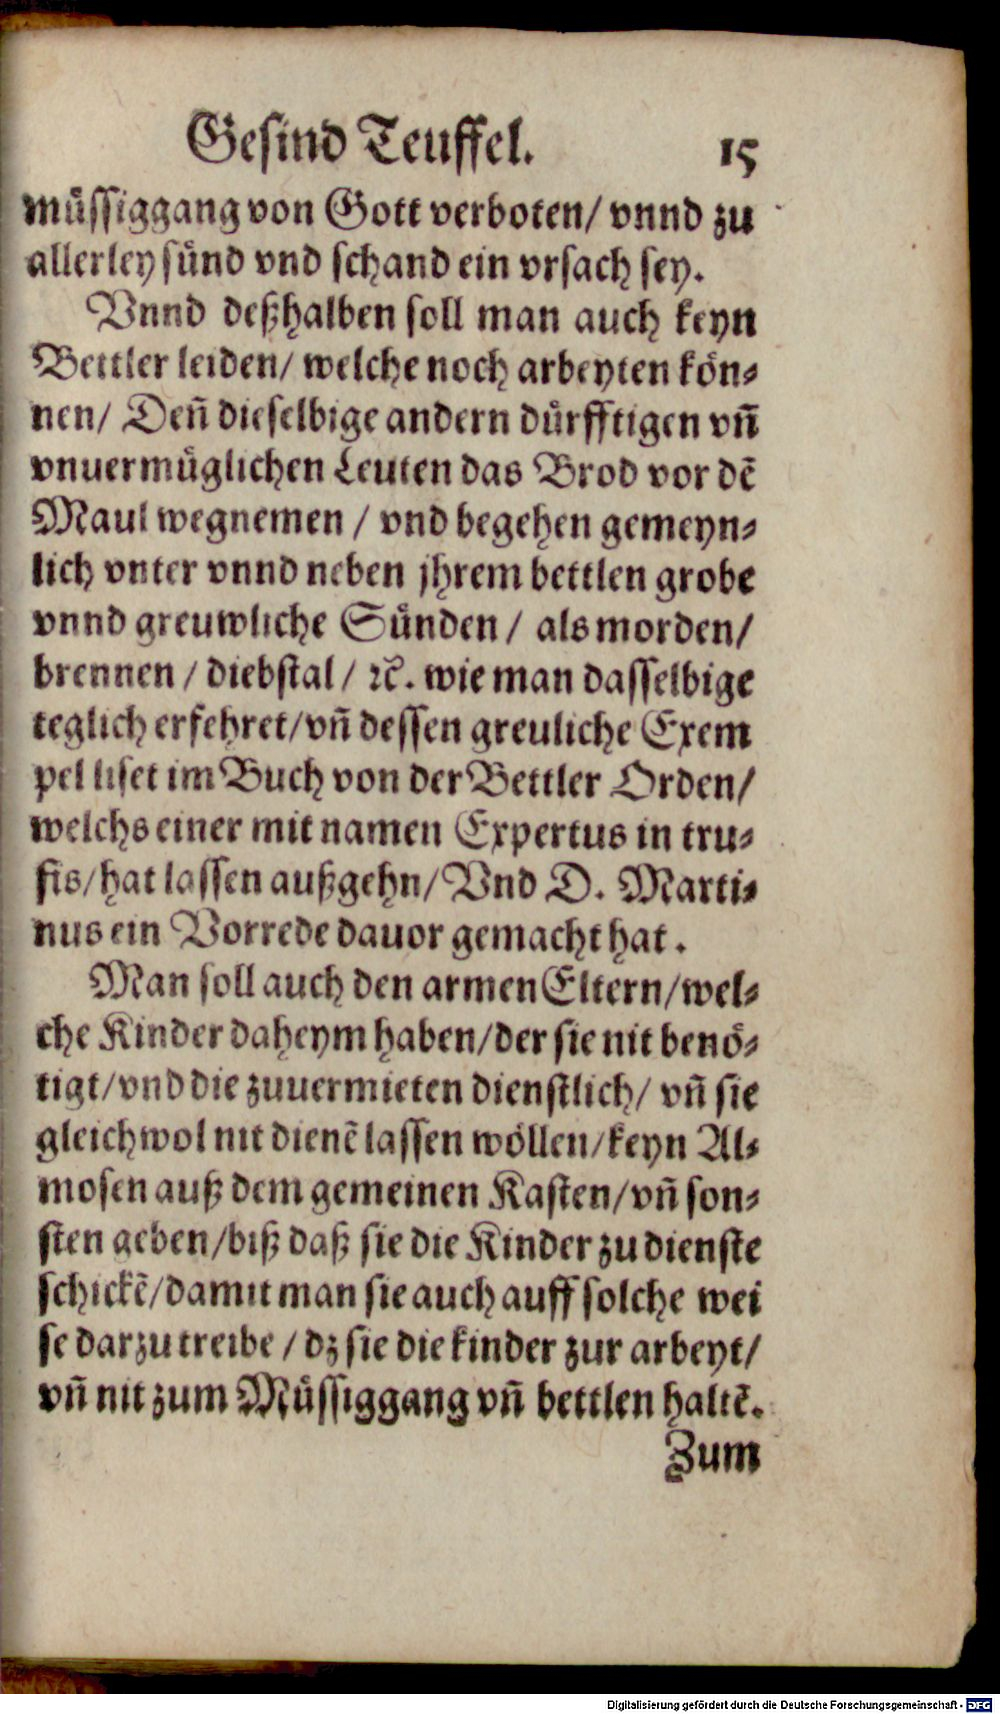 Gesind Teuffel. 15
müssiggang von Gott verboten/ vnnd zu
allerley sünd vnd schand ein vrsach sey.
Vnnd deßhalben soll man auch keyn
Bettler leiden/ welche noch arbeyten kön⸗
nen/ Den̄ dieselbige andern dürfftigen vn̄
vnuermüglichen Leuten das Brod vor dē
Maul wegnemen / vnd begehen gemeyn⸗
lich vnter vnnd neben jhrem bettlen grobe
vnnd greuwliche Sünden / als morden/
brennen / diebstal / ꝛc̃. wie man dasselbige
teglich erfehret/ vn̄ dessen greuliche Exem
pel liset im Buch von der Bettler Orden/
welchs einer mit namen Expertus in tru⸗
fis/ hat lassen außgehn/ Vnd D. Marti⸗
nus ein Vorrede dauor gemacht hat.
Man soll auch den armen Eltern/ wel⸗
che Kinder daheym haben/ der sie nit benö⸗
tigt/ vnd die zuuermieten dienstlich/ vn̄ sie
gleichwol nit dienē lassen wöllen/ keyn Al⸗
mosen auß dem gemeinen Kasten/ vn̄ son⸗
sten geben/ biß daß sie die Kinder zu dienste
schickē/ damit man sie auch auff solche wei
se darzu treibe / dz sie die kinder zur arbeyt/
vn̄ nit zum Müssiggang vn̄ bettlen haltē.
Zum
Digitalisierung gefördert durch die Deutsche Forschungsgemeinschaft - DFG